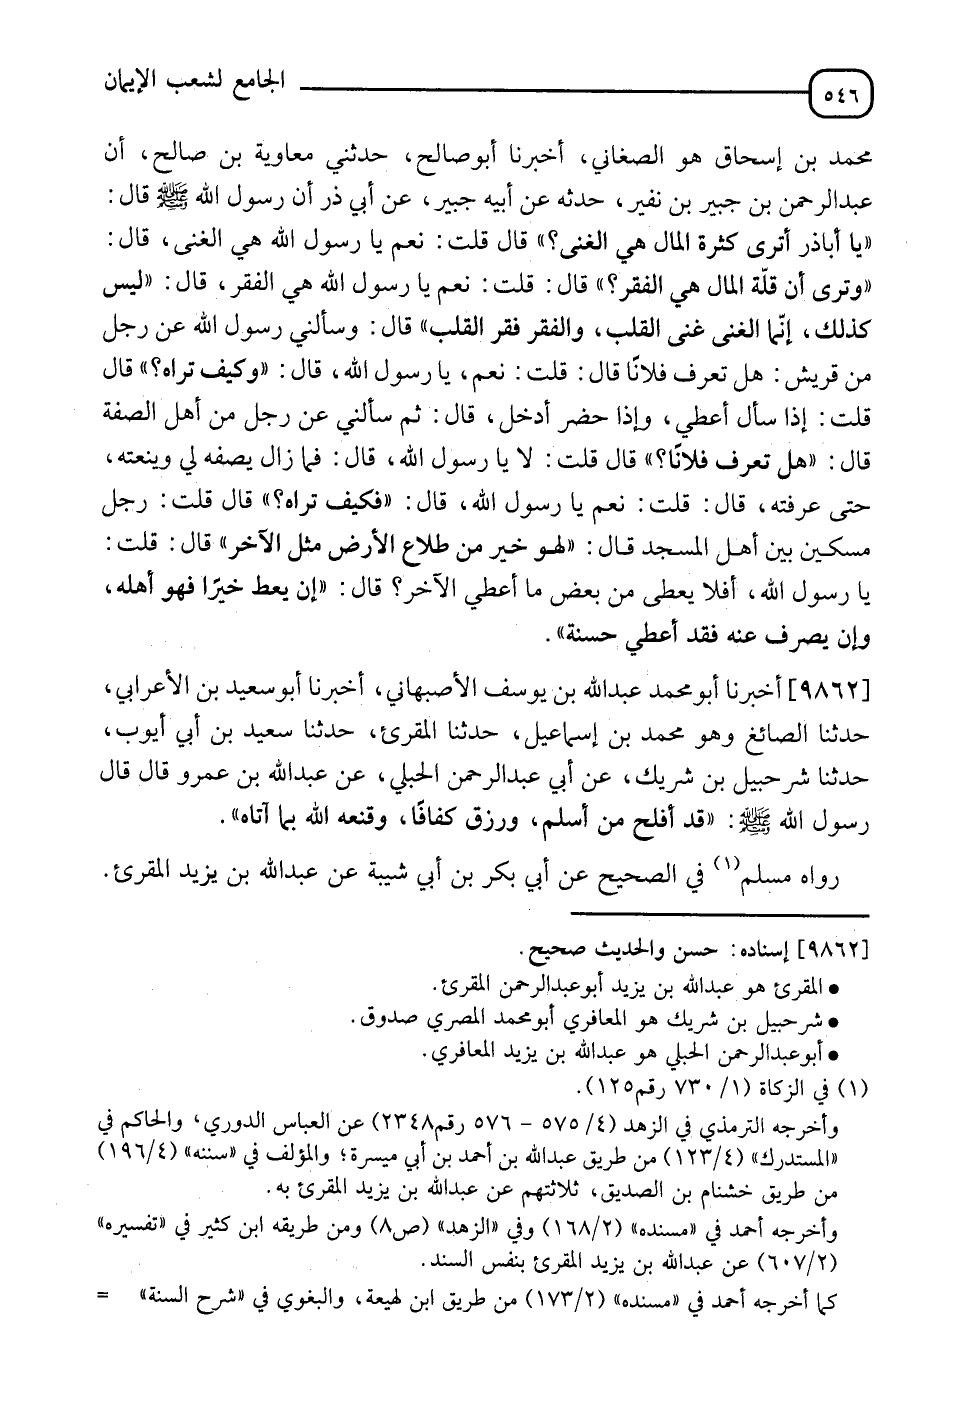 ٥٤٦ الجامع لشعب الإيمان
محمد بن إسحاق هو الصغاني، أخبرنا أبوصالح، حدثني معاوية بن صالح، أن
عبدالرحمن بن جبير بن نفير، حدثه عن أبيه جبير، عن أبي ذر أن رسول الله ﷺ قال:
«يا أباذر أترى كثرة المال هي الغنى؟» قال قلت: نعم يا رسول الله هي الغنى، قال:
«وترى أن قلّة المال هي الفقر؟» قال: قلت: نعم يا رسول الله هي الفقر، قال: «ليس
كذلك، إنّما الغنى غنى القلب، والفقر فقر القلب» قال: وسألني رسول الله عن رجل
من قريش: هل تعرف فلانًا قال: قلت: نعم، يا رسول الله، قال: «وكيف تراه؟» قال
قلت: إذا سأل أعطي، وإذا حضر أدخل، قال: ثم سألني عن رجل من أهل الصفة
قال: «هل تعرف فلانًا؟» قال قلت: لا يا رسول الله، قال: فما زال يصفه لي وينعته،
حتى عرفته، قال: قلت: نعم يا رسول الله، قال: «فكيف تراه؟» قال قلت: رجل
مسكين بين أهل المسجد قال: «لهو خير من طلاع الأرض مثل الآخر» قال: قلت:
يا رسول الله، أفلا يعطى من بعض ما أعطي الآخر؟ قال: «إن يعط خيرًا فهو أهله،
وإن يصرف عنه فقد أعطي حسنة».
[٩٨٦٢] أخبرنا أبومحمد عبدالله بن يوسف الأصبهاني، أخبرنا أبوسعيد بن الأعرابي،
حدثنا الصائغ وهو محمد بن إسماعيل، حدثنا المقرئ، حدثنا سعيد بن أبي أيوب،
حدثنا شرحبيل بن شريك، عن أبي عبدالرحمن الحبلي، عن عبدالله بن عمرو قال قال
رسول الله ﷺ: «قد أفلح من أسلم، ورزق كفافًا، وقنعه الله بما آتاه».
رواه مسلم(١) في الصحيح عن أبي بكر بن أبي شيبة عن عبدالله بن يزيد المقرئ.
[٩٨٦٢] إسناده: حسن والحديث صحيح.
• المقرئ هو عبدالله بن يزيد أبوعبدالرحمن المقرئ.
• شرحبيل بن شريك هو المعافري أبومحمد المصري صدوق.
• أبوعبدالرحمن الحبلي هو عبدالله بن يزيد المعافري.
(١) في الزكاة (١/ ٧٣٠ رقم١٢٥).
وأخرجه الترمذي في الزهد (٤/ ٥٧٥ - ٥٧٦ رقم٢٣٤٨) عن العباس الدوري، والحاكم في
«المستدرك» (١٢٣/٤) من طريق عبدالله بن أحمد بن أبي ميسرة؛ والمؤلف في «سننه» (١٩٦/٤)
من طريق خشنام بن الصديق، ثلاثتهم عن عبدالله بن يزيد المقرئ به.
وأخرجه أحمد في «مسنده» (١٦٨/٢) وفي «الزهد» (ص٨) ومن طريقه ابن كثير في «تفسيره»
(٦٠٧/٢) عن عبدالله بن يزيد المقرئ بنفس السند.
كما أخرجه أحمد في «مسنده» (١٧٣/٢) من طريق ابن لهيعة، والبغوي في «شرح السنة» =